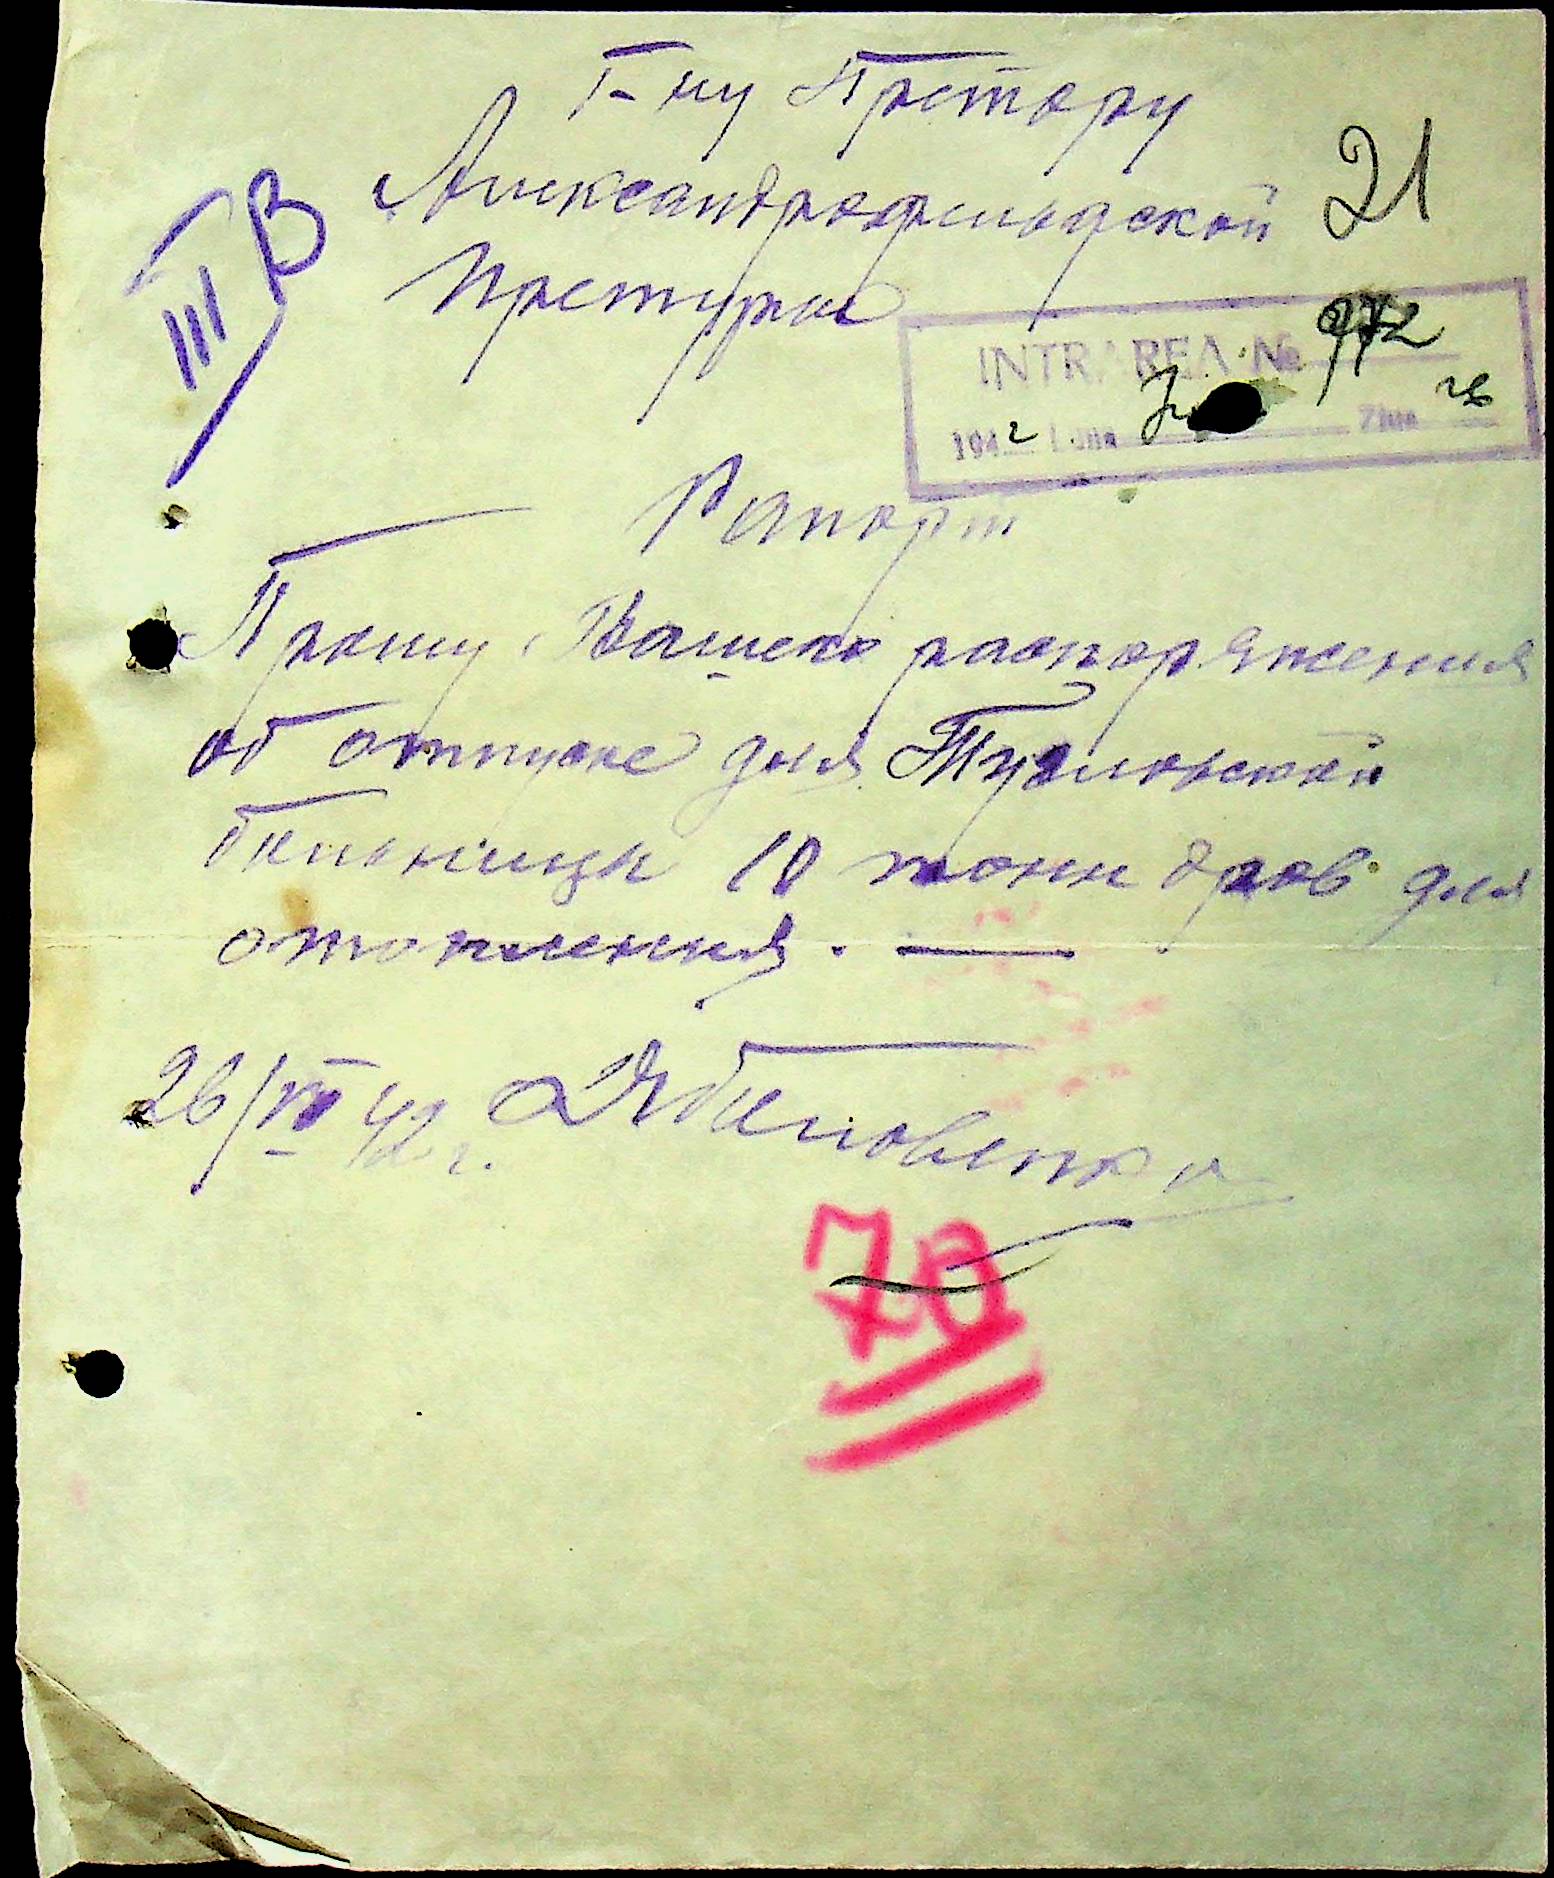 Г-ну Претору
Александрофельдской
Претуры
21
III В
INTRAREA №
972
194 2 Luna Ziua 26
Рапорт
Прошу Вашего распоряжения
об отпуске для Тузловской
больницы 10 тонн дров для
отопления. —
26/VII 42 г.
70